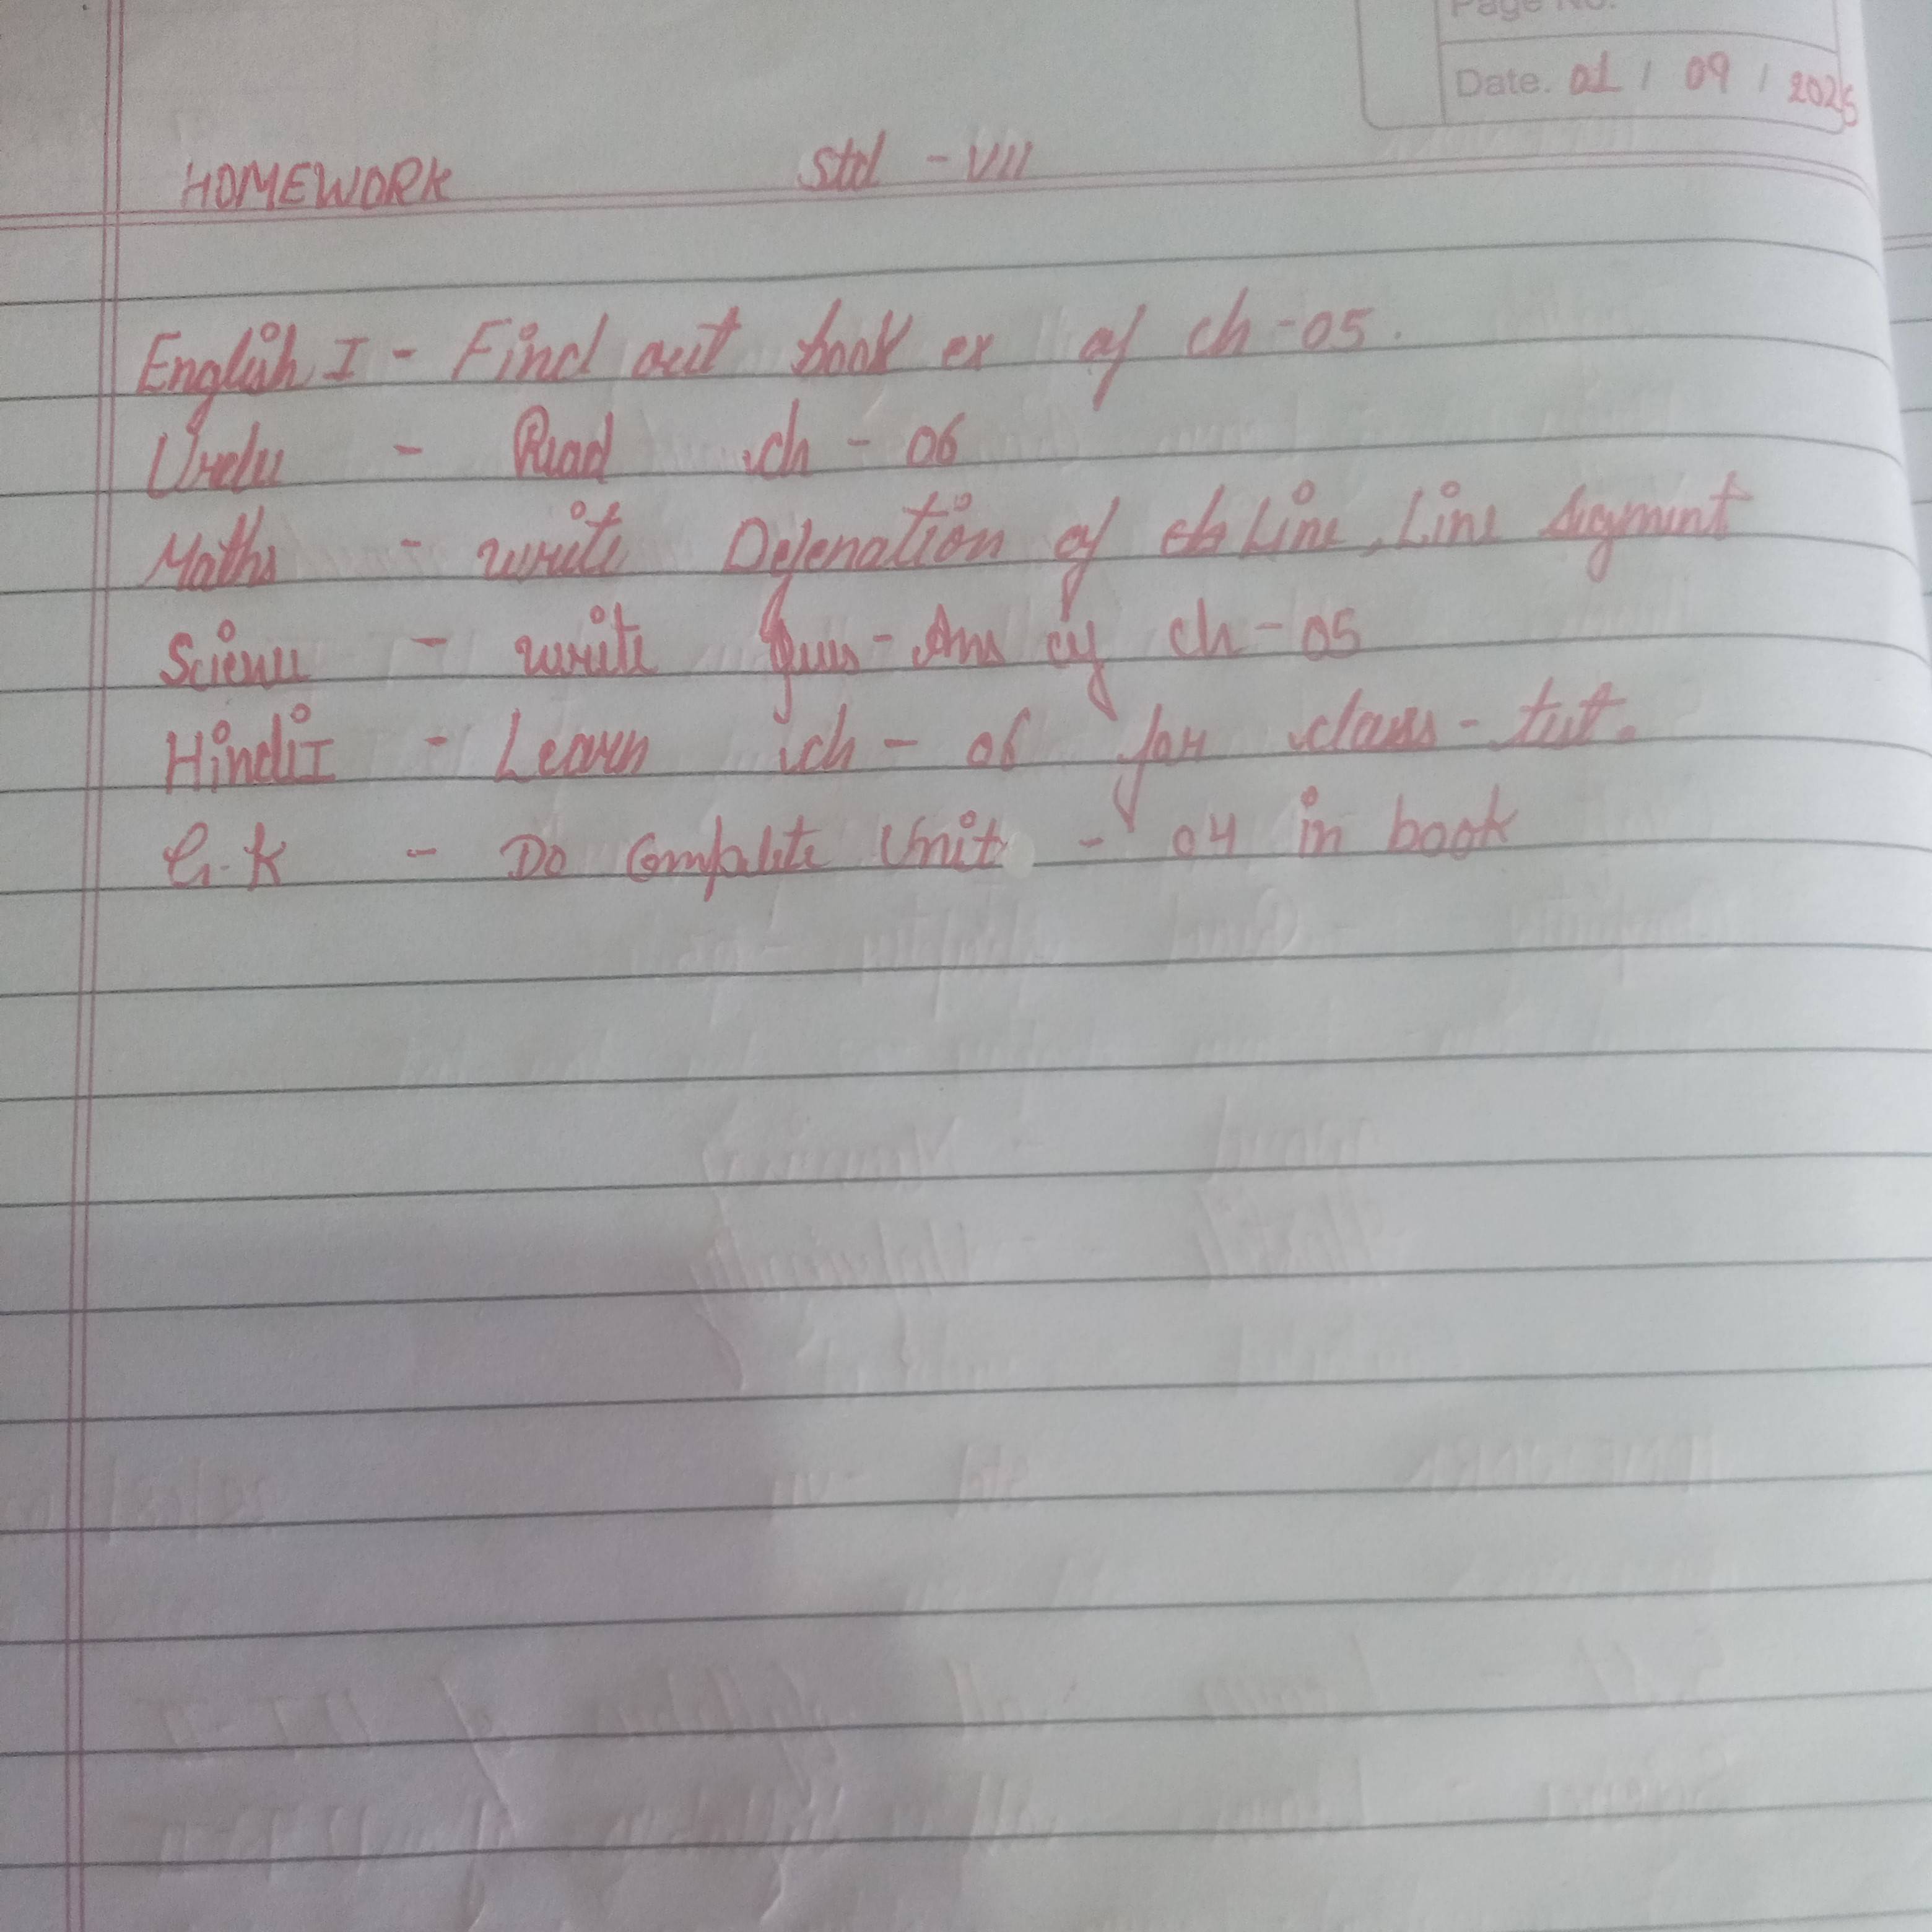 Page No.
Date. 01 / 09 / 2025
HOMEWORK Std - VII
English I - Find out book ex of ch-05.
Urdu - Read ch - 06
Maths - write Defenation of Line, Line Segment
Science - write Ques-Ans of ch-05
Hindi I - Learn ch - 06 for class-test.
G.K - Do Complete Unit - 04 in book